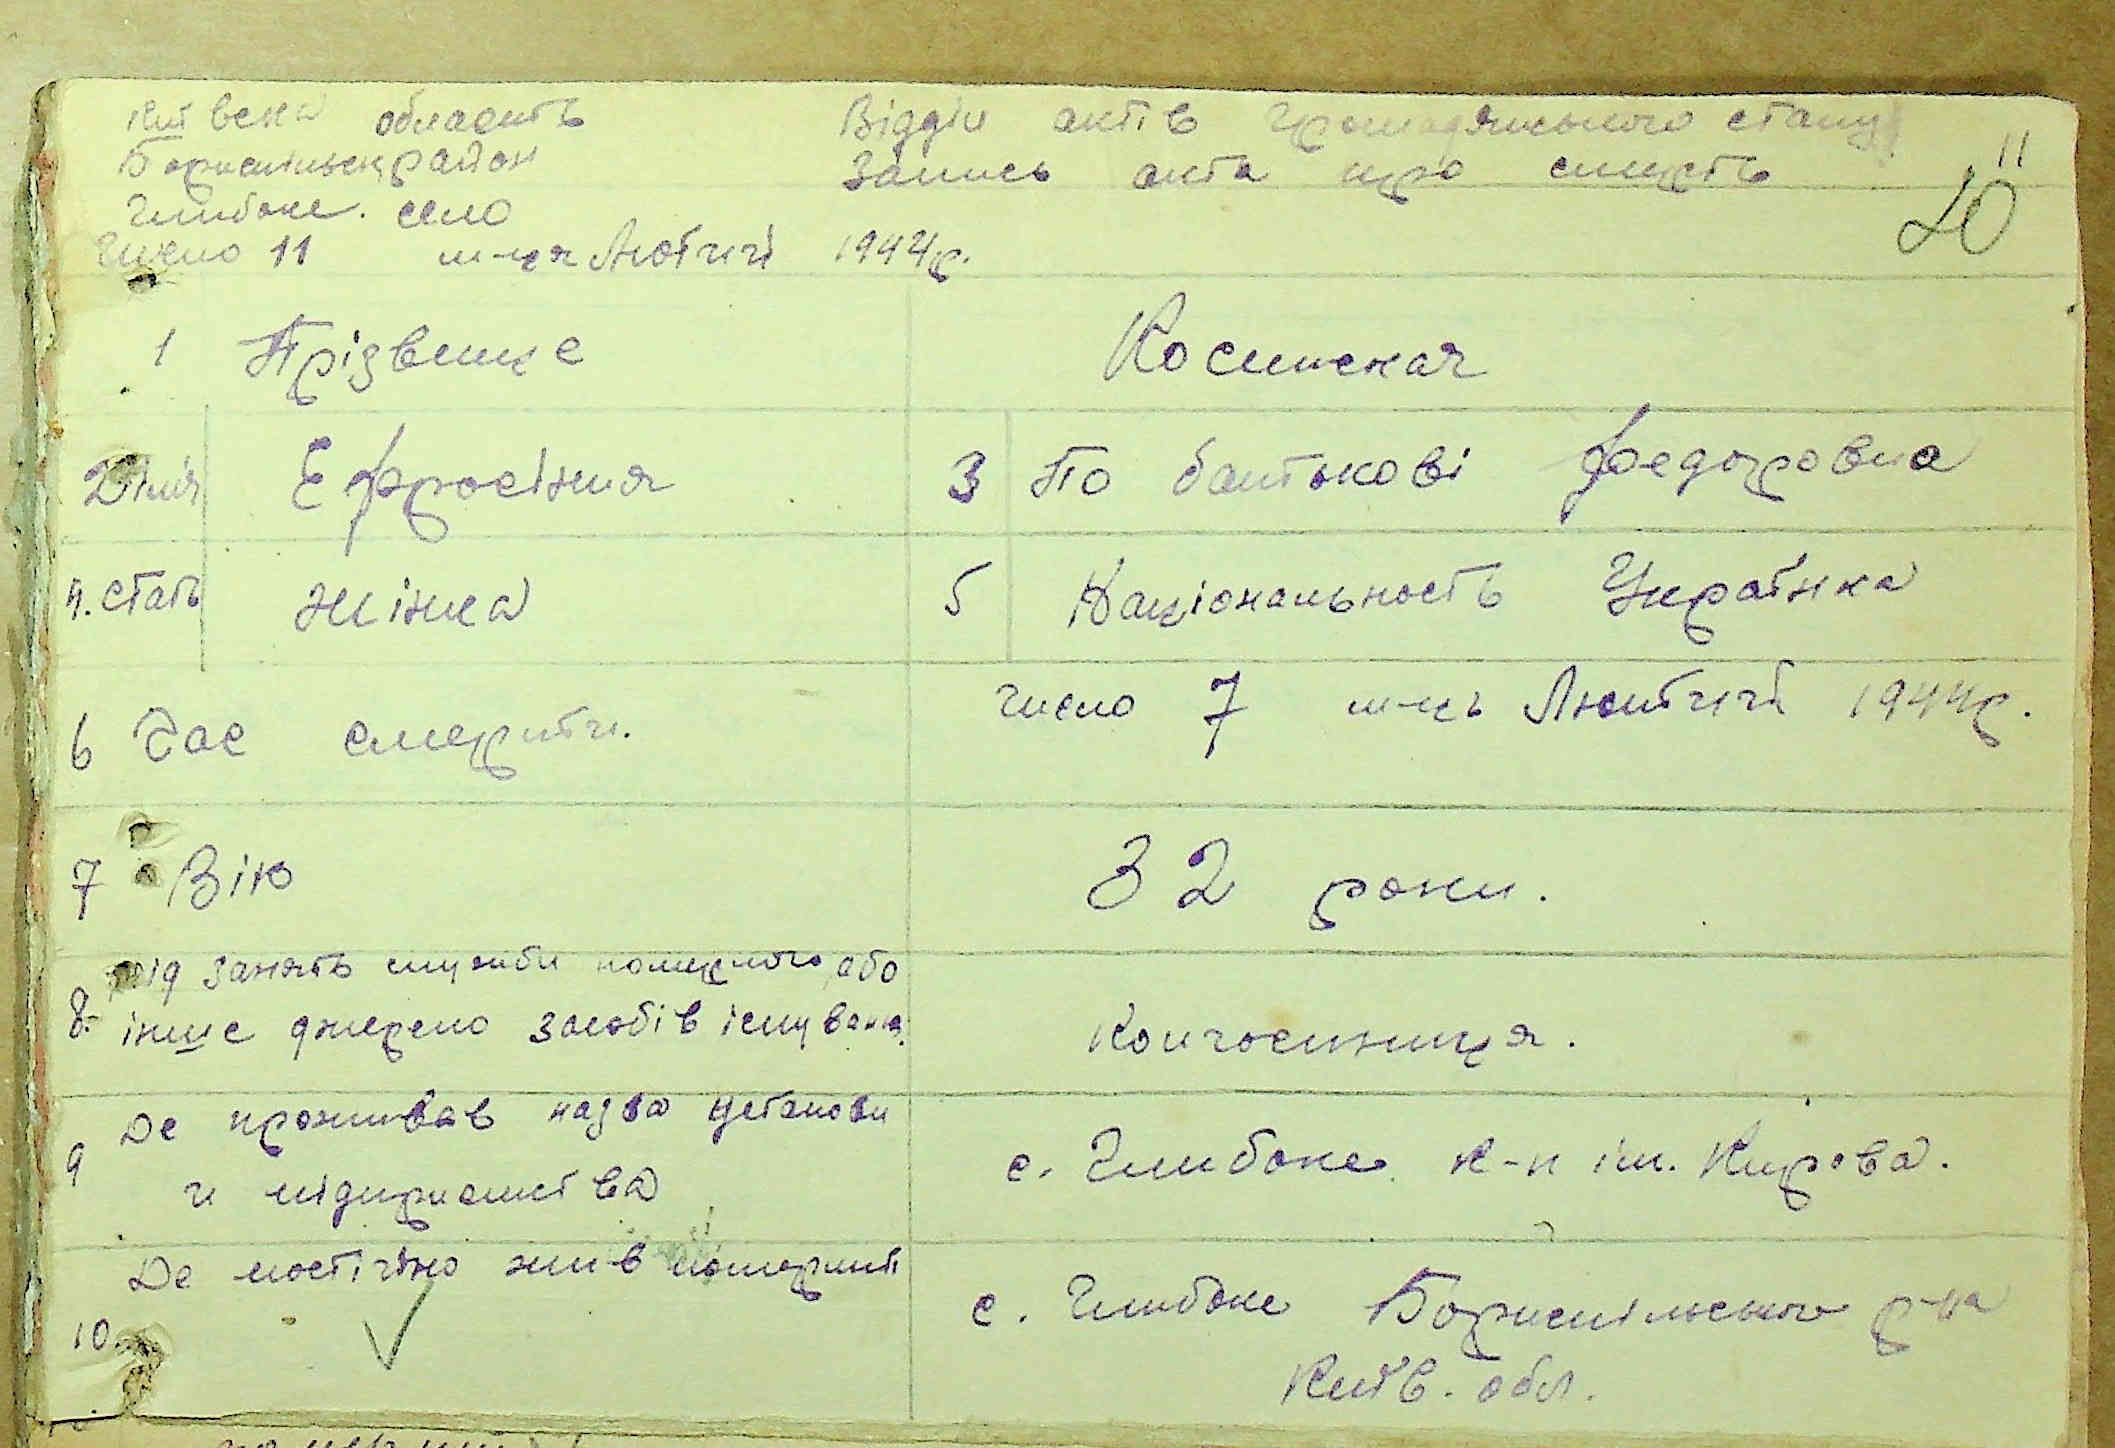 Київська область Відділ актів громадянського стану
Бориспільськ район Запись акта про смерть
Глибоке. село
Число 11 м-ця Лютий 1944р.
11
20
1 Прізвище Косинская
2 Імія Ефросінія 3 По батькові Федоровна
4. Стать Жінка 5 Національность Українка
6 Час смерти. число 7 м-ць Лютий 1944р.
7 Вік 32 роки.
8. рід занять служби померлого або
інше джерело засобів існування. Колгоспниця.
9 Де проживав назва установи
и підприємства с. Глибоке к-п ім. Кирова.
10. Де постійно жив померлий с. Глибоке Бориспільского р-на
Київ. обл.